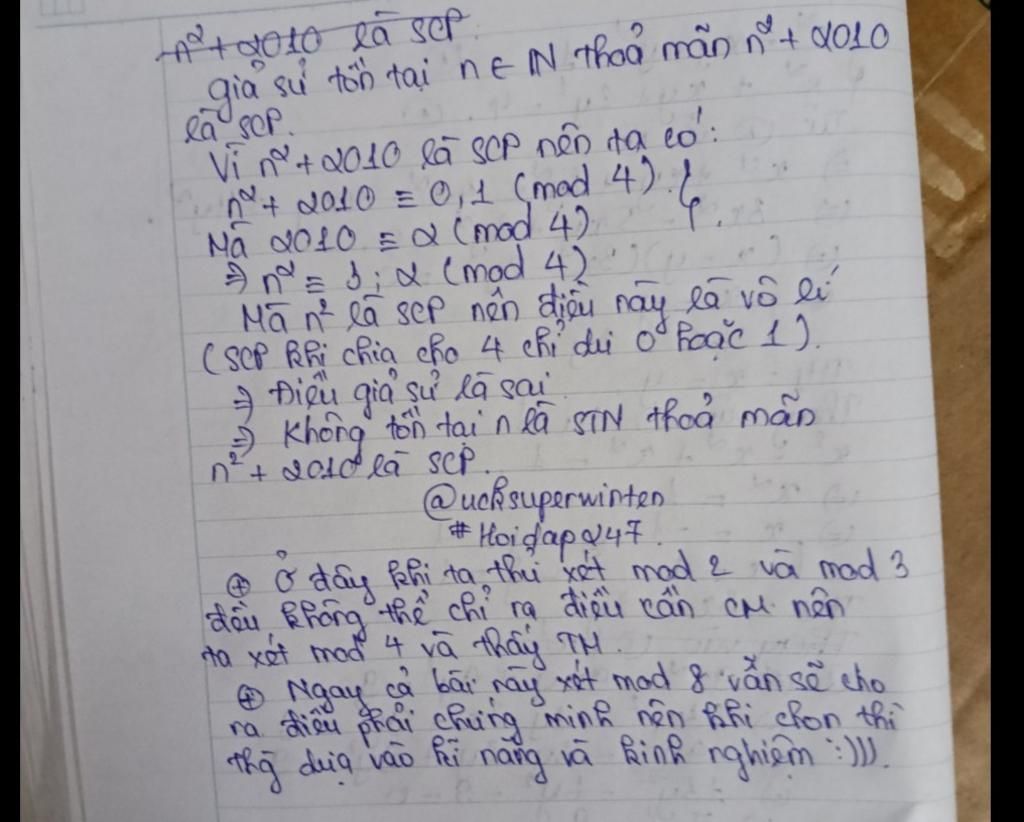 n² + 2010 là SCP.
giả sử tồn tại n ∈ N thoả mãn n² + 2010
là SCP.
Vì n² + 2010 là SCP nên ta có:
n² + 2010 ≡ 0,1 (mod 4).
Mà 2010 ≡ 2 (mod 4)
⇒ n² ≡ 3; 2 (mod 4)
Mà n² là SCP nên điều này là vô lí
(SCP khi chia cho 4 chỉ dư 0 hoặc 1).
⇒ Điều giả sử là sai
⇒ Không tồn tại n là STN thoả mãn
n² + 2010 là SCP.
@uchsuperwinten
#Hoidap247.
⊕ Ở đây khi ta thử xét mod 2 và mod 3
đều không thể chỉ ra điều cần CM nên
ta xét mod 4 và thấy TM.
⊕ Ngay cả bài này xét mod 8 vẫn sẽ cho
ra điều phải chứng minh nên khi chọn thì
dựa vào kĩ năng và kinh nghiệm :))).